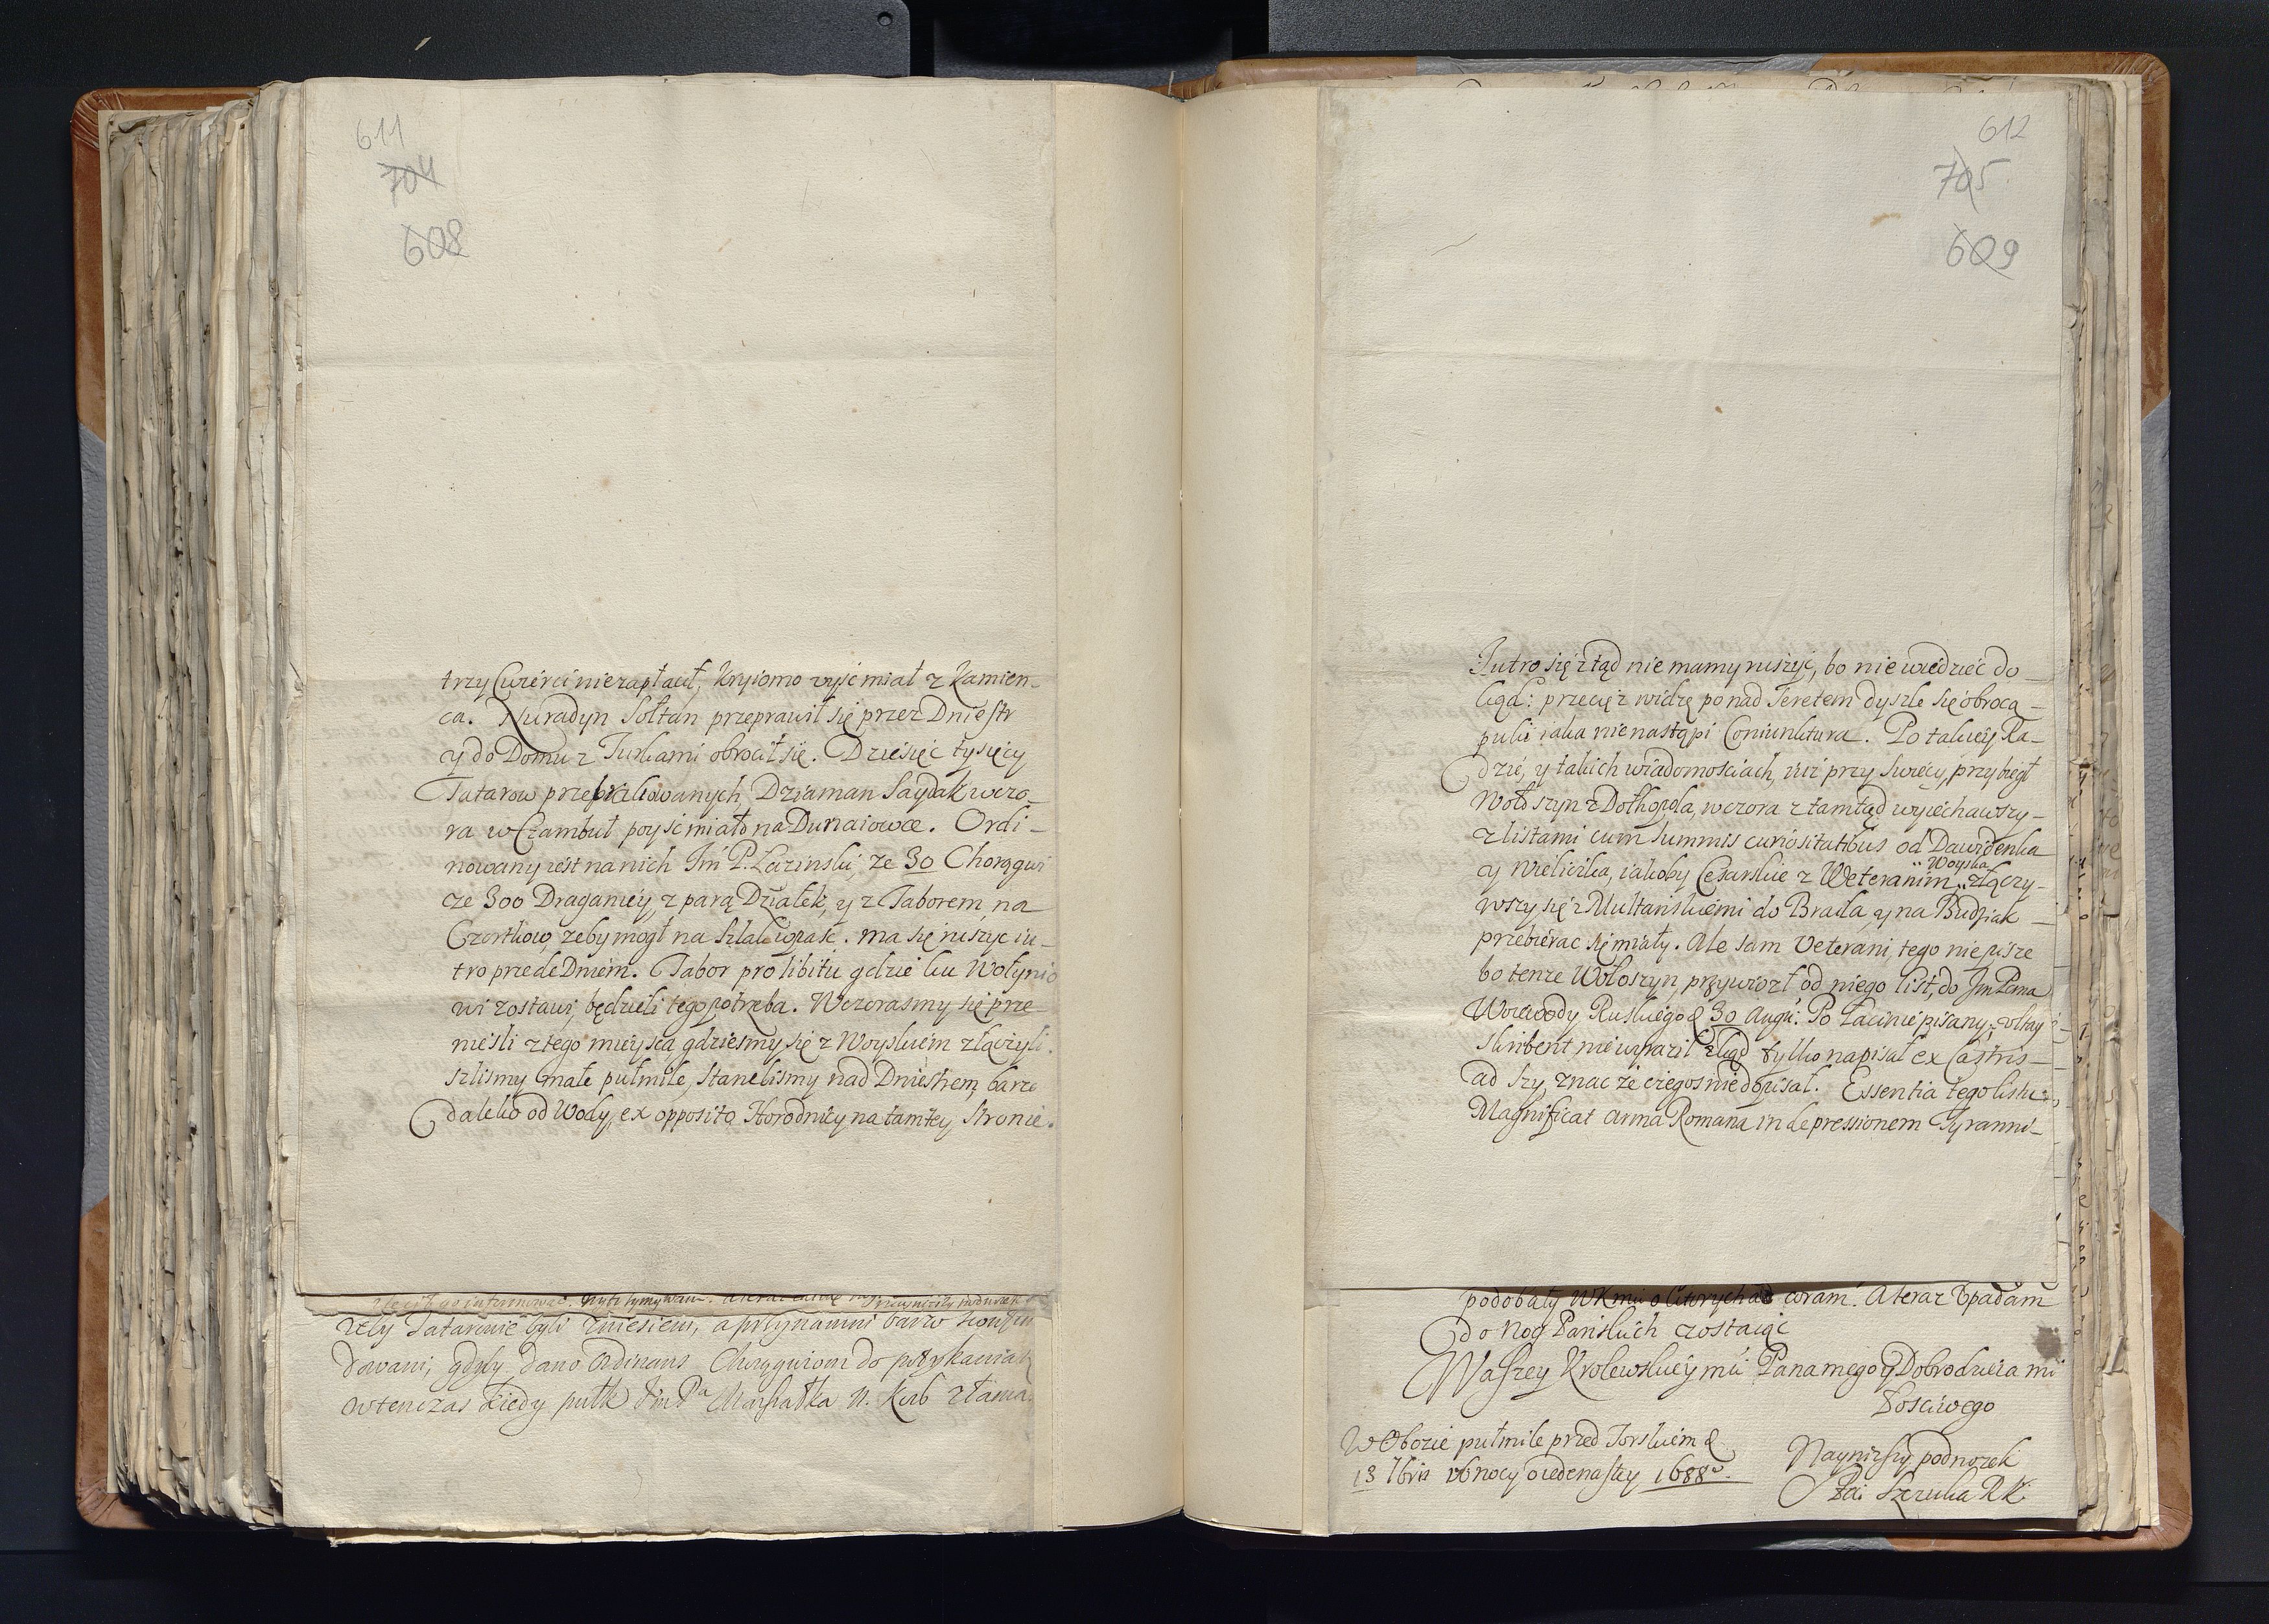 611
704
608
trzy Cwierci niezapłacił, kryiomo wyść miał z Kamien-
ca. Nuradyn Sołtan przeprawił się przez Dniestr
y do Domu z Turkami obrocił się. Dziesięć tysięcy
Tatarow przebrakowanych, Dziaman Saydak wczo-
ra w Czambuł poyść miał na Dunaiowce. Ordi-
nowany iest na nich Im P. Lazinski, ze 30 Chorągwi
ze 300 Draganiey, z parą Działek, y z Taborem, na
Czortkow, zeby mogł na Szlak wpaść. ma się ruszyc iu-
tro przede Dniem. Tabor pro libitu gdzie ku Wołynio
wi zostawi, będzieli tego potrzeba. Wczorasmy się prze-
niesli z tego mieysca, gdziesmy się z Woyskiem złączyli.
szlismy małe pułmile, stanelismy nad Dniestrem, barzo
daleko od Wody, ex opposito Horodnicy na tamtey Stronie.
zeby Tatarowie byli zniesieni, a przynamni barzo
dowani, gdyby dano Ordinans Chorągwiom do potykania
wtenczas kiedy pułk Im Pa Marszałka N. Kor złama.
612
705
609
Iutro się ztąd nie mamy ruszyć, bo nie wiedzieć do-
kąd: przecię z widzę ponad Seretem dyszle się obrocą-
puki iaka nie nastąpi Coniunktura. Po takiey Ra-
dzie, y takich wiadomosciach, iuż przy Swiecy, przybiegł
Wołoszyn z Dołhopola, wczora z tamtąd wyiechawszy-
z listami cum summis curiositatibus od Dawidenka
Woyska
y Wieliczka, iakoby Cesarskie z Weteranim złączy-
wszy się z Multanskiemi do Braiła, y na Budziak-
przebierac się miały. Ale sam Veterani, tego nie pisze
bo tenze Wołoszyn, przywiozł od niego list, do Im Pana
Woiewody Ruskiego d 30 Augu: Po Łacinie pisany,
skribent nie wyraził zkąd tylko napisał ex Castris-
ad Szy, znac że czegos nie dopisał. Essentia tego listu
Magnificat arma Romana in depressionem Tyranni-
podobały WKmci o ktorych ad coram. A teraz Upadam
do Nog Panskich zostaiąc
Waszey Krolewskiey mci Pana mego y Dobrodzieia mi
łosciwego
W Obozie pułmile przed Torskiem d
13 7bris w nocy o iedenastey 1688o.
Nayniższy podnozek
Szczuka RK